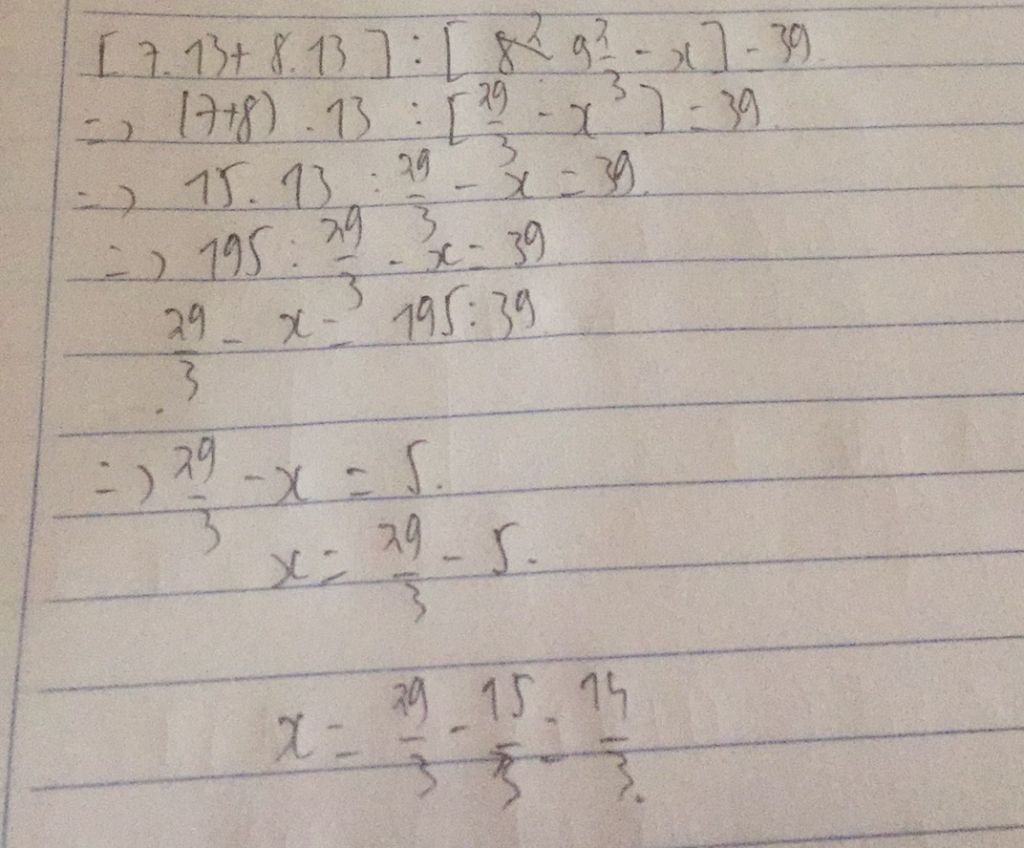 [ 7.13 + 8.13 ] : [ 9 2/3 - x ] = 39
=> (7+8) . 13 : [ 29/3 - x ] = 39
=> 15 . 13 : 29/3 - x = 39.
=> 195 : 29/3 - x = 39
29/3 - x = 195 : 39
=> 29/3 - x = 5.
x = 29/3 - 5.
x = 29/3 - 15/3 = 14/3.